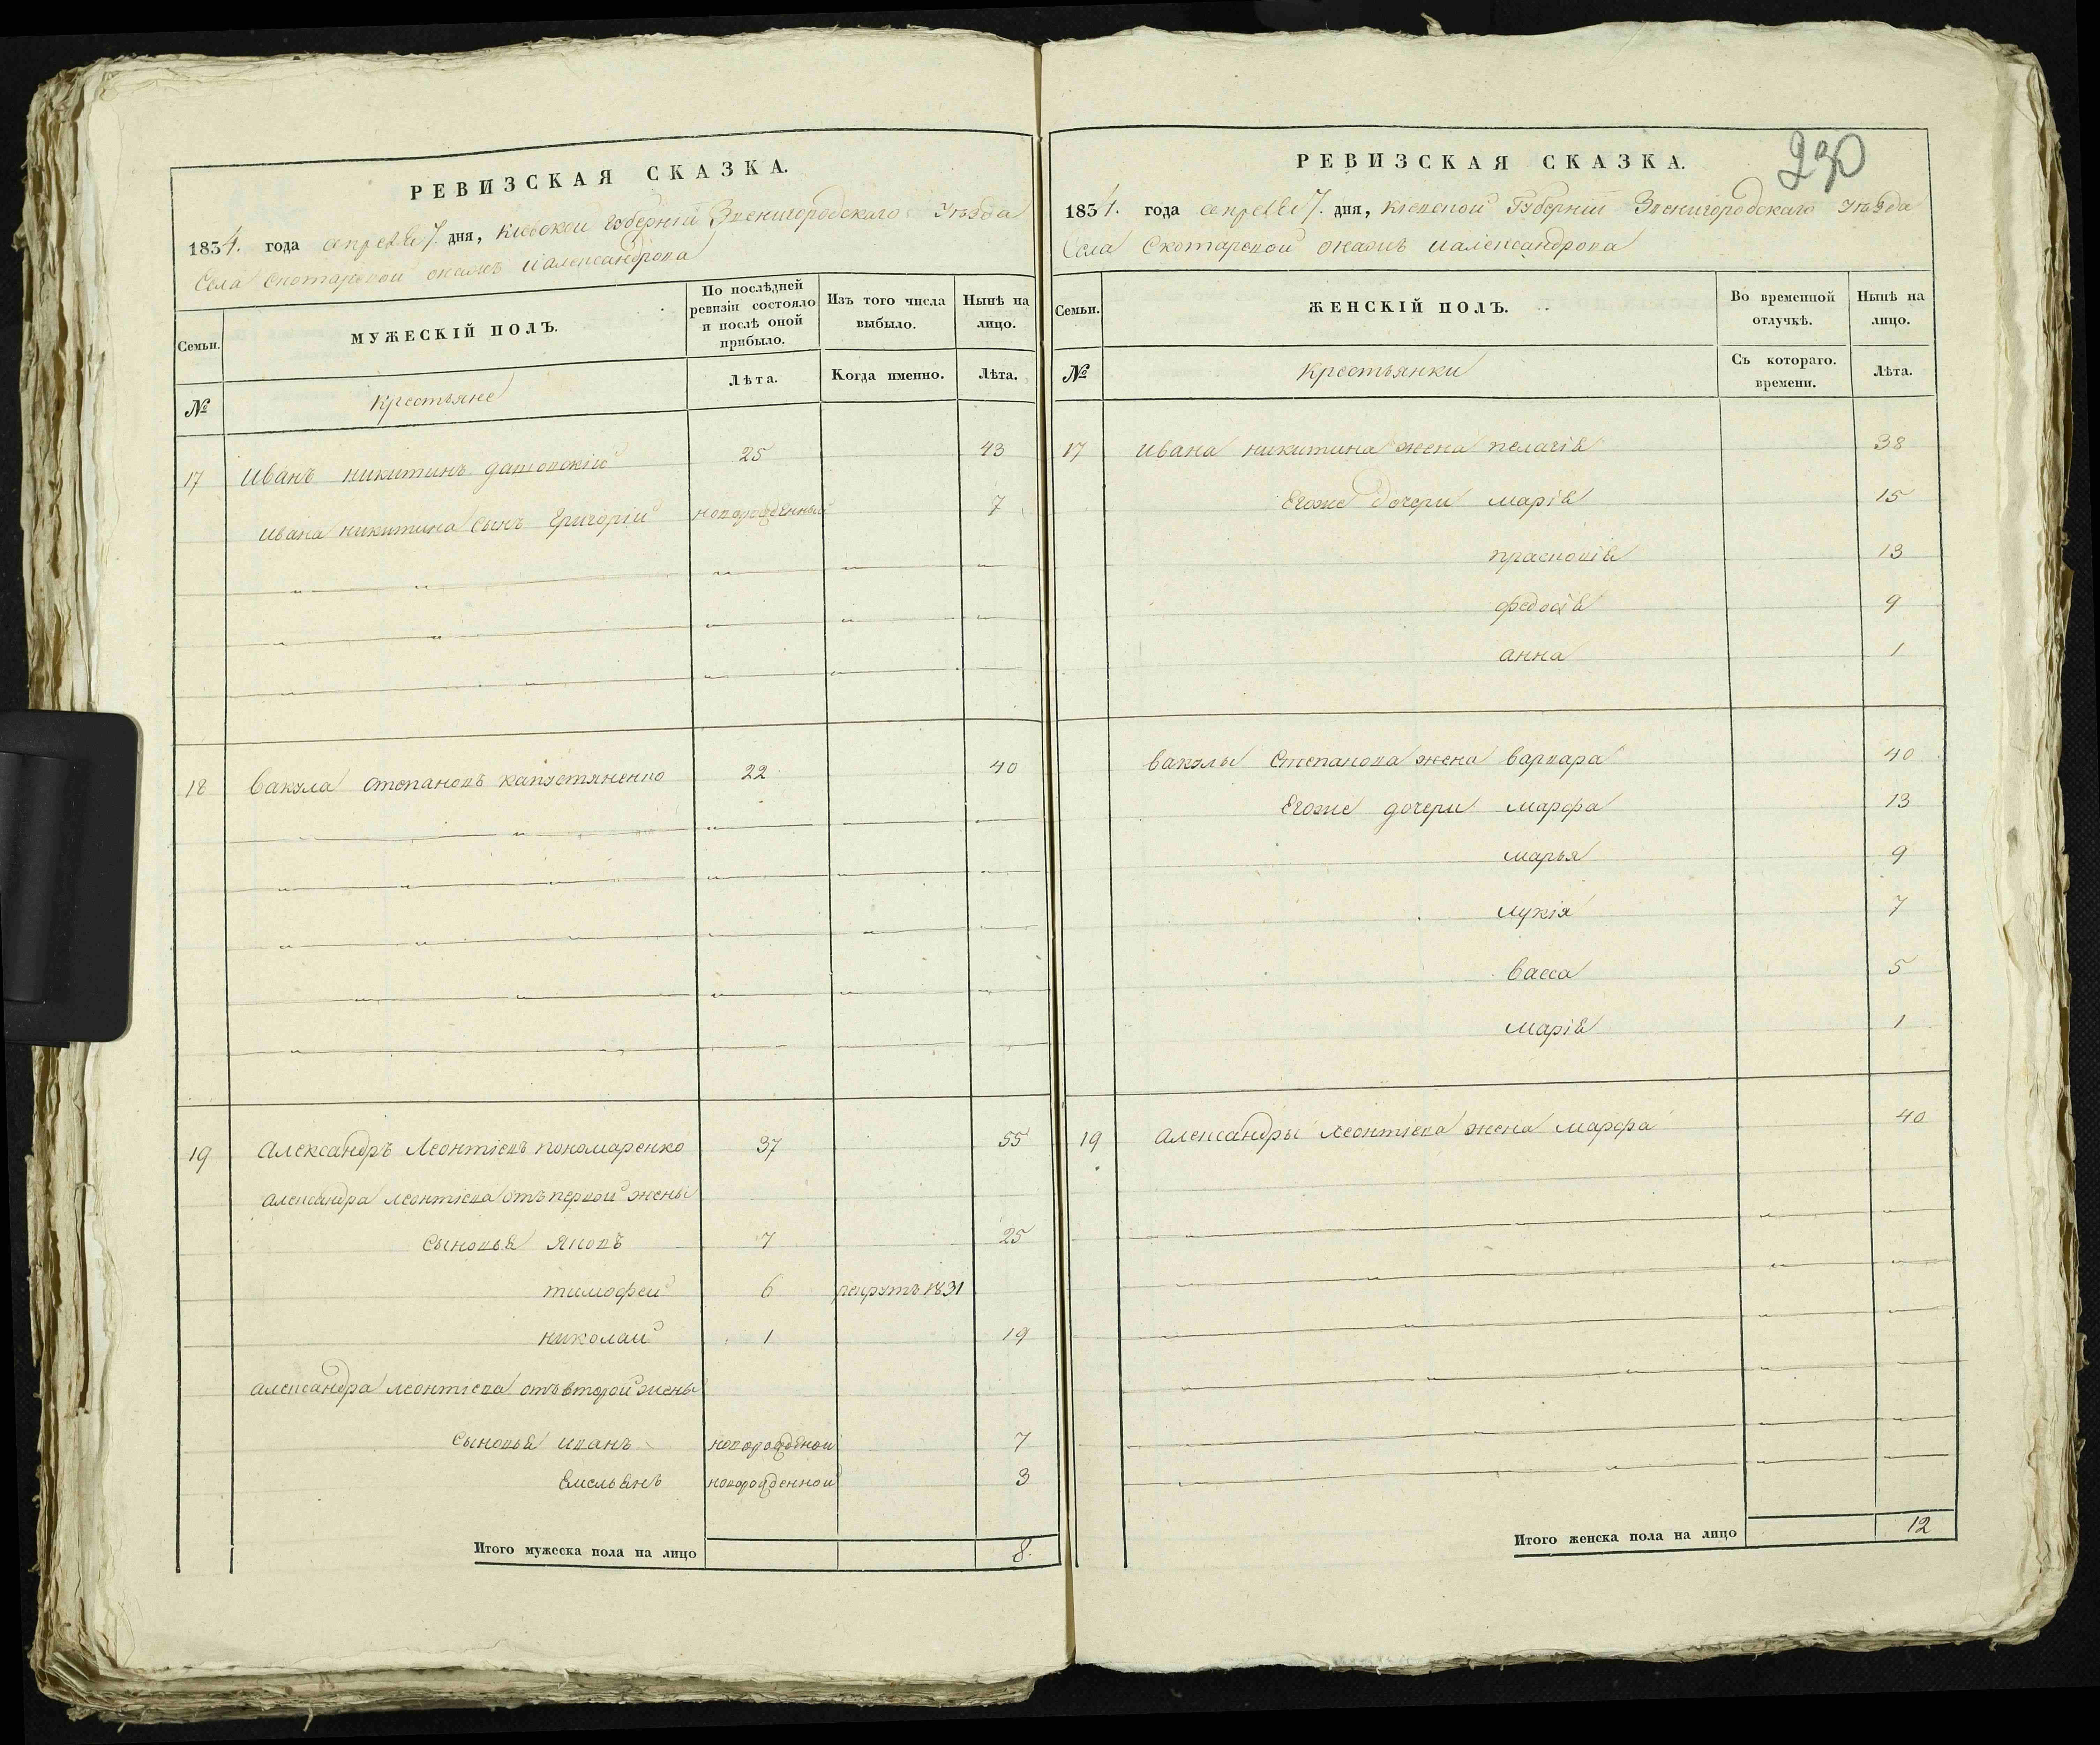 РЕВИЗСКАЯ СКАЗКА.
1834. года апреля 7. дня, Киевской Губернии Звенигородского Уезда
Села Скотаревой
Семьи.
МУЖЕСКІЙ ПОЛЪ.
По послѣдней ревизіи состояло и послѣ оной прибыло.
Изъ того числа выбыло.
Нынѣ на лицо.
№
Крестьяне
Лѣта.
Когда именно.
Лѣта.
17 Иванъ никитинъ 25 43
Ивана никитина сынъ Григорій новорожденный 7
18 Вакула степановъ капустяненко 22 40
19 Александръ Леонтіевъ пономаренко 37 55
александра леонтіева отъ первой жены
сыновья яковъ 7 25
тимофей 6 рекрутъ 1831
николай 1 19
александра леонтіева отъ второй жены
сыновья иванъ новорожденой 7
Емельянъ новорожденной 3
Итого мужеска пола на лицо 8.
290
РЕВИЗСКАЯ СКАЗКА.
1834. года апреля 7. дня, Киевской Губерніи Звенигородскаго Уезда
Села Скотаревой
Семьи.
ЖЕНСКІЙ ПОЛЪ.
Во временной отлучкѣ.
Нынѣ на лицо.
№
Крестьянки
Съ котораго. времени.
Лѣта.
17 Ивана никитина жена пелагія 38
Егоже дочери марія 15
прасковія 13
федосія 9
анна 1
вакулы Степанова жена варвара 40
Егоже дочери марфа 13
марья 9
лукія 7
васса 5
марія 1
19 Александры леонтіева жена марфа 40
Итого женска пола на лицо 12